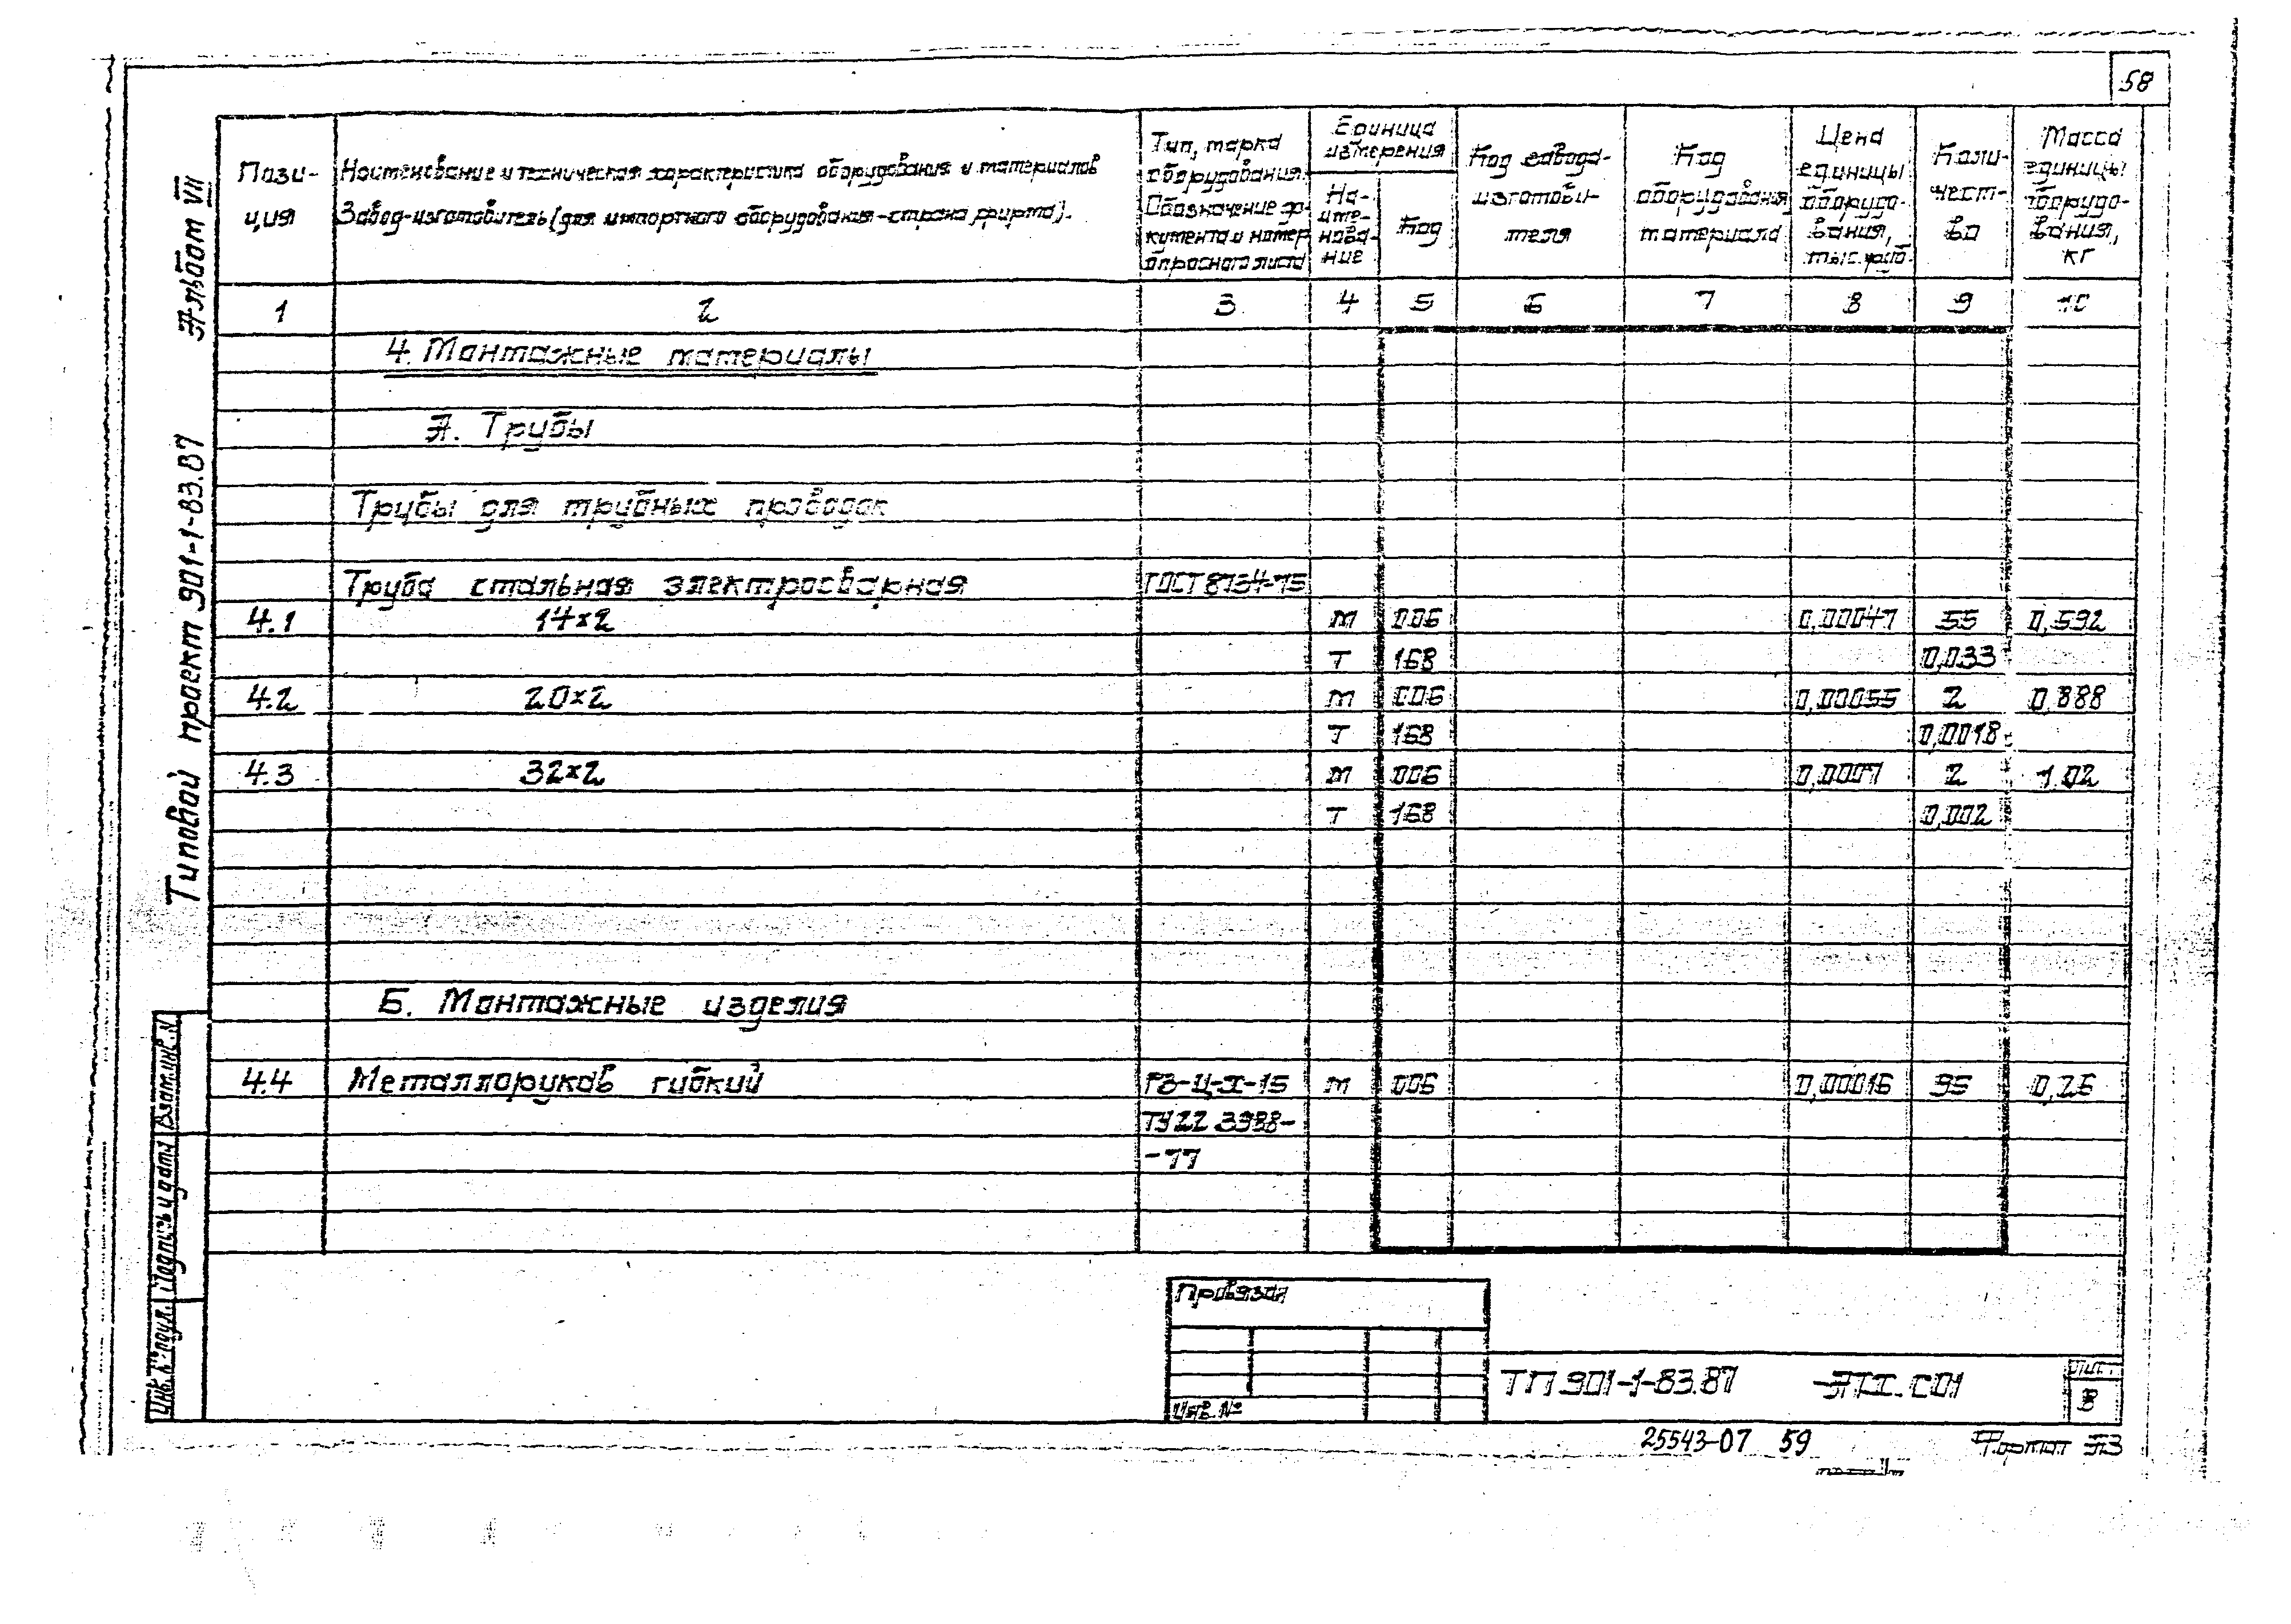 58
Пози-
ция
Наименование и техническая характеристика оборудования и материалов
Завод-изготовитель (для импортного оборудования-страна, фирма).
Тип, марка
оборудования.
Обозначение до-
кумента и номер
опросного листа
Единица
измерения
На-
име-
нова-
ние
Код
Код завода-
изготови-
теля
Код
оборудования
материала
Цена
единицы
оборудо-
вания,
тыс. руб
Коли-
чест-
во
Масса
единицы
оборудо-
вания,
кг
1 2 3 4 5 6 7 8 9 10
4. Монтажные материалы
А. Трубы
Трубы для трубных проводок
Труба стальная электросварная ГОСТ 8734-75
4.1 14×2 м 006 0,00047 55 0,592
Т 168 0,033
4.2 20×2 м 006 0,00055 2 0,888
Т 168 0,0018
4.3 32×2 м 006 0,0007 2 1.02
Т 168 0,002
Б. Монтажные изделия
4.4 Металлорукав гибкий РЗ-Ц-Х-15 м 006 0,00016 95 0,26
ТУ 22 3988-
-77
Альбом VII
Типовой проект 901-1-83.87
Взам.инв.N
Подпись и дата
Инв.N подл.
Привязан
Инв. №
ТП 901-1-83.87 -АТХ.СО1
Лист
8
25543-07 59
Формат А3